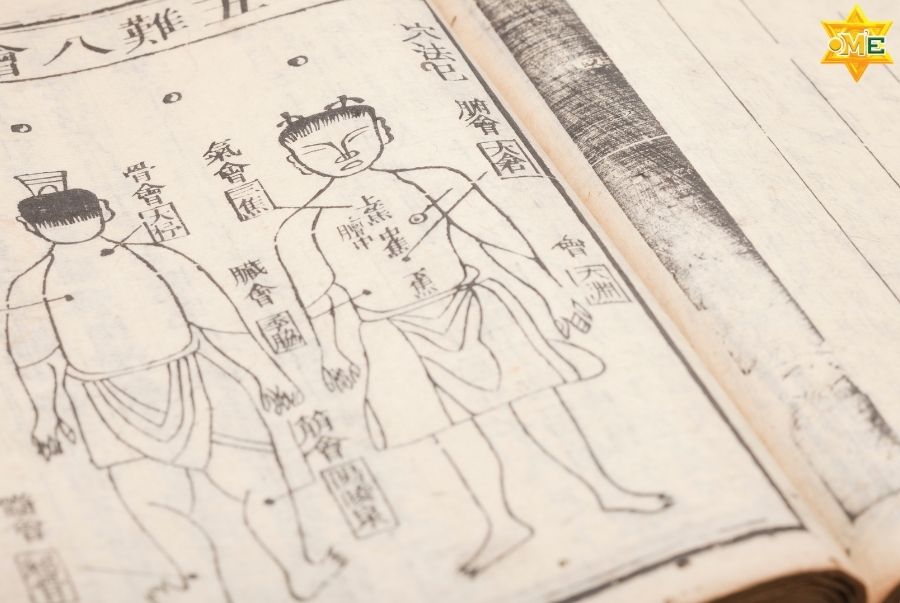 五難八會
穴法
腑會
太倉
氣會
三焦
骨會
大杼
上焦
膻中
中焦
焦
臟會
季脇
會
筋會
陽陵泉
OME